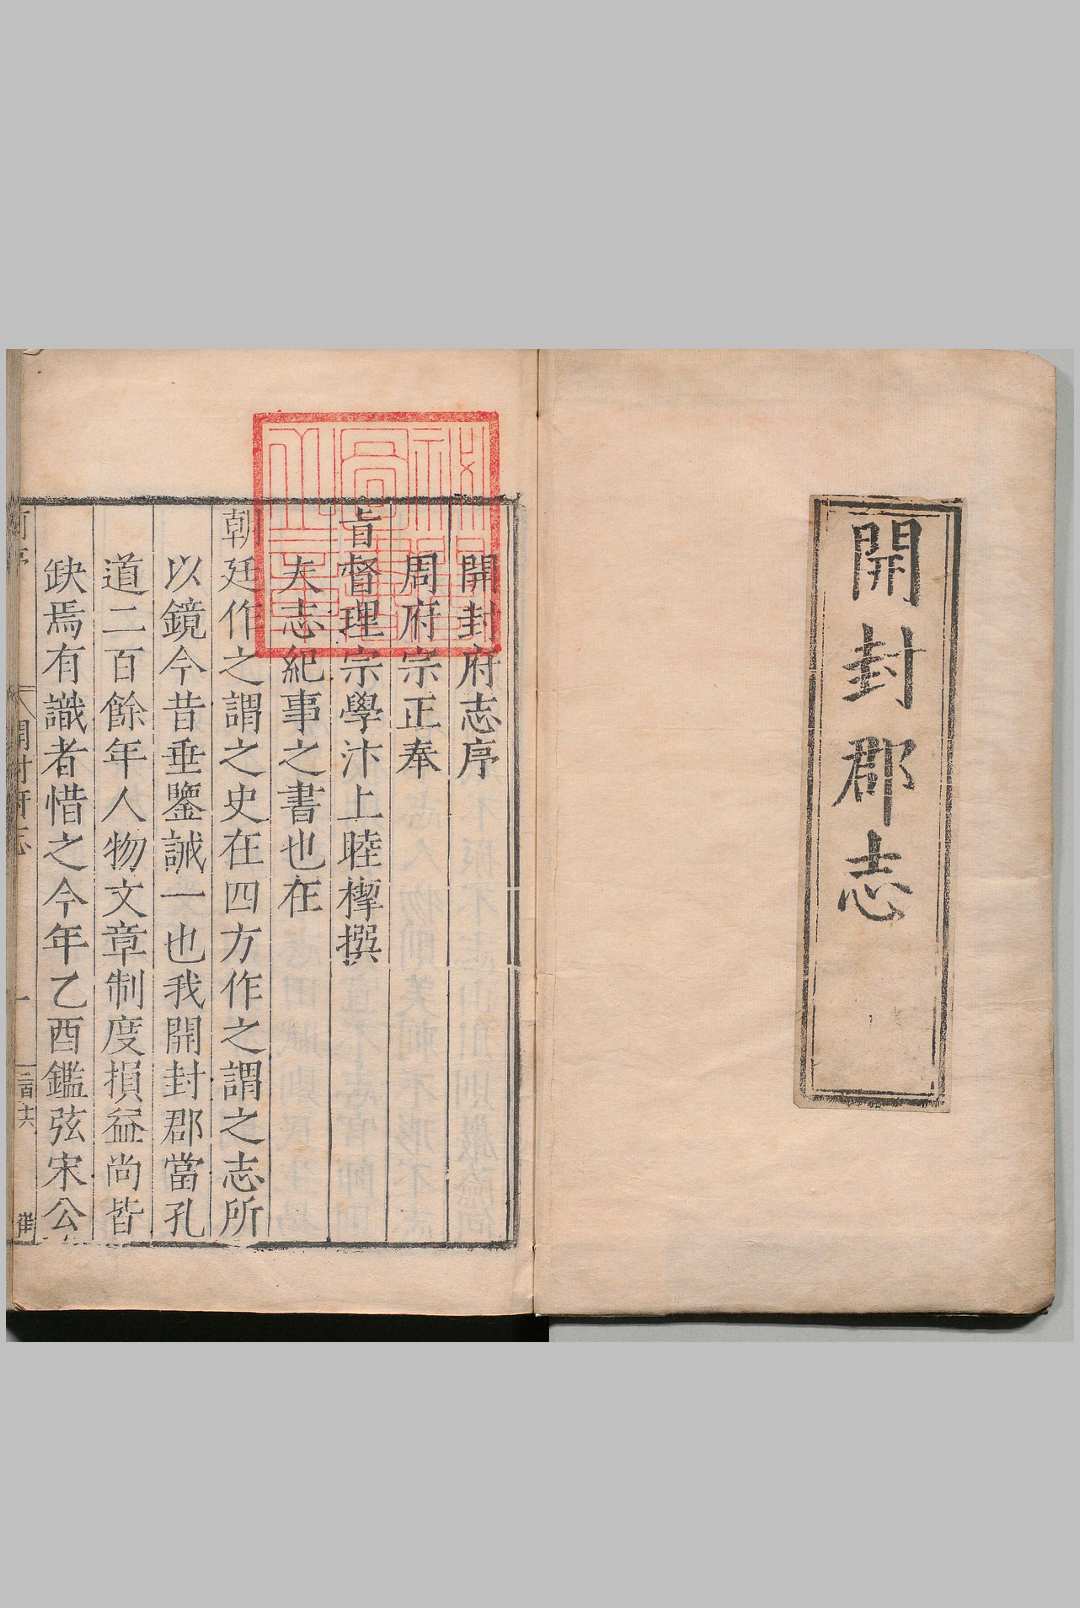 開封郡志
開封府志序
周府宗正奉
旨督理宗學汴上睦㮮撰
夫志紀事之書也在
朝廷作之謂之史在四方作之謂之志所
以鏡今昔垂鑒誡一也我開封郡當孔
道二百餘年人物文章制度損益尚皆
缺焉有識者惜之今年乙酉鑑弦宋公
開封府志
一